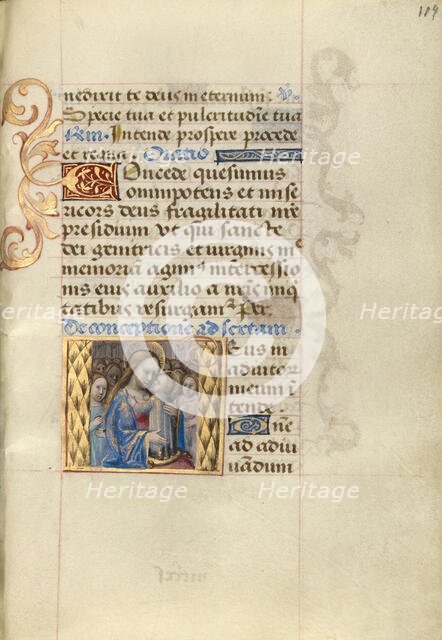 184
nedixit te deus in eternum: V.
Specie tua et pulcritudine tua
Rm. Intende prospere procede
et regna. Oratio
Concede quesumus
omnipotens et mise
ricors deus fragilitati nre
presidium Ut qui sancte
dei genitricis et virginis m
memoriam agim9 intercessio
nis eius auxilio a nris iniq
tatibus resurgam9 Per.
De conceptione ad sextam
Eus in
adiutor
meum in
tende.
Dne
ad adiu
vandum
Heritage
Heritage
Heritage
Heritage
Heritage
Heritage
Heritage
Heritage
Heritage